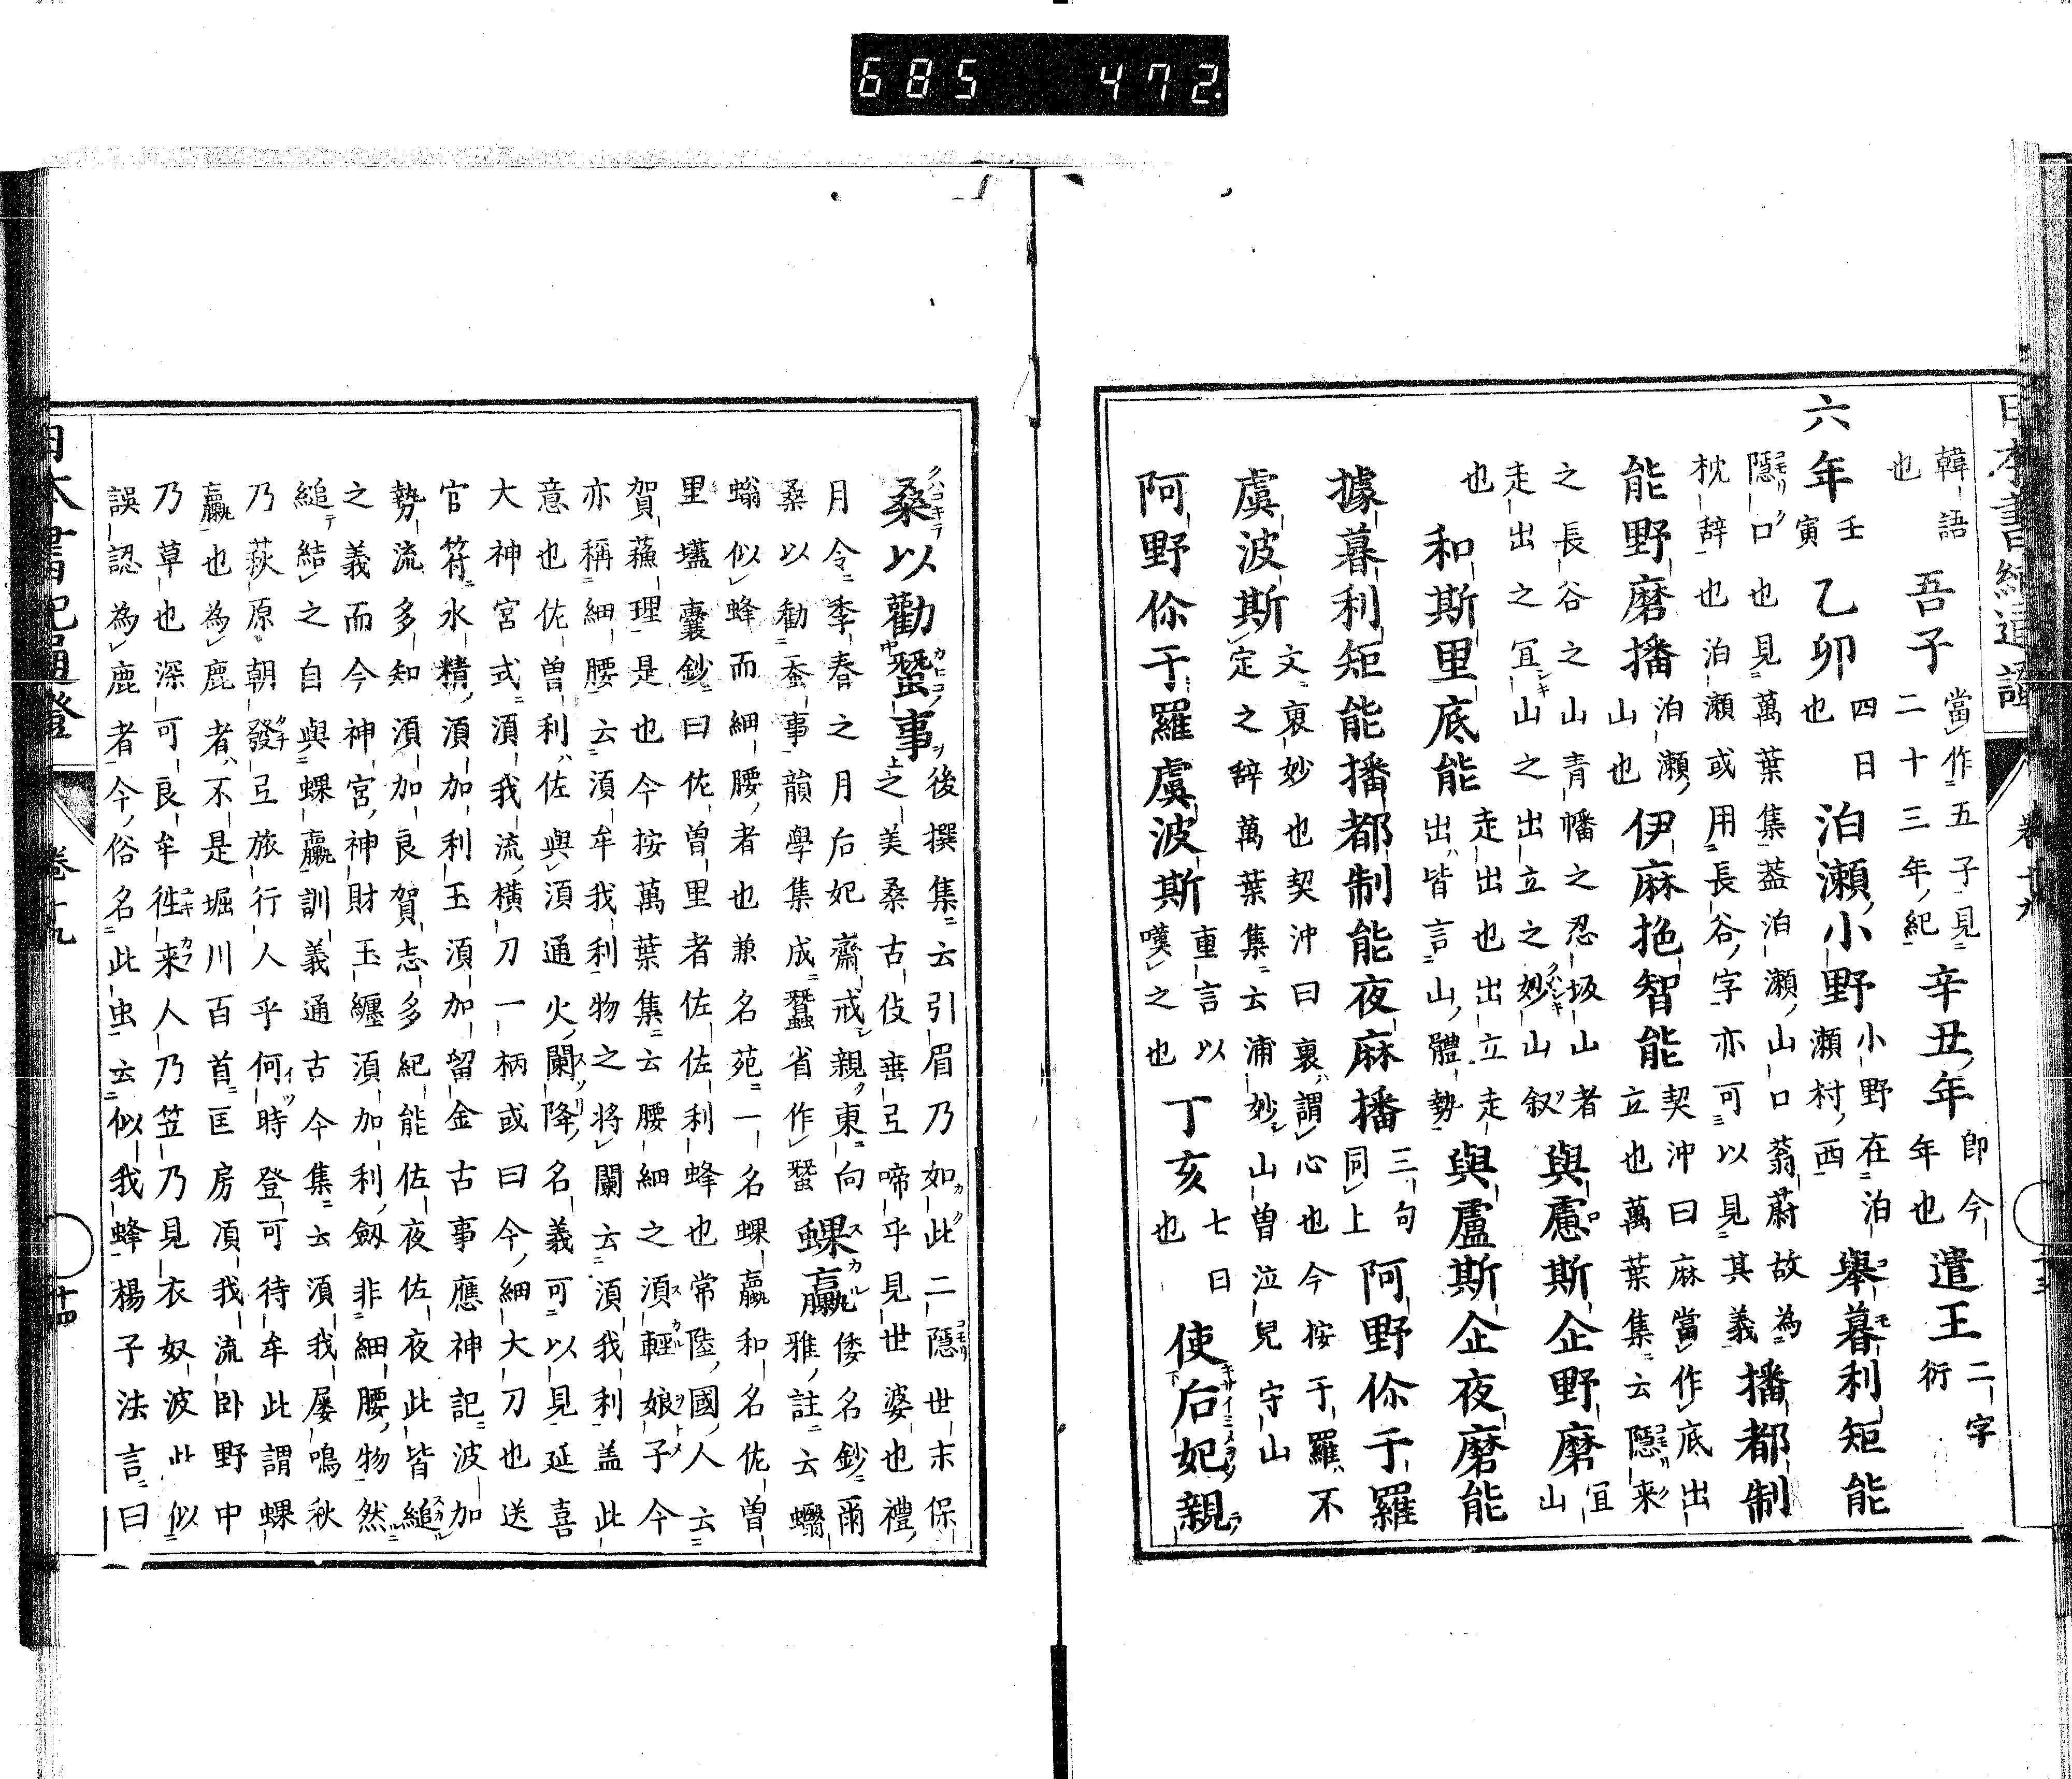 韓語也 吾子 當作五子見二十三年紀 辛丑年 即今年也 遣王 二字衍
六年 壬寅 乙卯 四日也 泊瀬小野 小野在泊瀬村西 擧暮利矩能
隱口也見萬葉集葢泊瀬山口蓊蔚故為枕辞也泊瀬或用長谷字亦可以見其義 播都制
能野磨播 泊瀬山也 伊麻拖智能 契沖曰麻當作底出立也萬葉集云隱来
之長谷之山青幡之忍坂山者走出之冝山之出立之妙山叙 與慮斯企野磨 冝山
也 和斯里底能 走出也出立走出皆言山體勢 與盧斯企夜磨能
據暮利矩能播都制能夜麻播 三句同上 阿野伱于羅
虞波斯 文裒妙也契沖曰裏謂心也今按于羅不定之辞萬葉集云浦妙山曽泣兒守山
阿野伱于羅虞波斯 重言以嘆之也 丁亥 七日也 使后妃親
桑以勸蠶事 後撰集云引眉乃如此二隱世末保之美桑古伎垂弖啼乎見世婆也禮
月令季春之月后妃齋戒親東向桑以勸蚕事韻學集成蠶省作蚕 蜾蠃 倭名鈔爾雅註云蠮
螉似蜂而細腰者也兼名苑一名蜾蠃和名佐曽
里壒囊鈔曰佐曽里者佐佐利蜂也常陸國人云
賀蘓理是也今按萬葉集云腰細之須輕娘子今
亦稱細腰云須牟我利物之将闌云須我利盖此
意也佐曽利佐與須通火闌降名義可以見延喜
大神宮式須我流横刀一柄或曰今細大刀也送
官符水精須加利玉須加留金古事應神記波加
勢流多知須加良賀志多紀能佐夜佐夜此皆縋
之義而今神宮神財玉纒須加利劔非細腰物然
縋結之自與蜾蠃訓義通古今集云須我屢鳴秋
乃萩原朝發弖旅行人乎何時登可待牟此謂蜾
蠃也為鹿者不是堀川百首匡房須我流卧野中
乃草也深可良牟徃来人乃笠乃見衣奴波此似
誤認為鹿者今俗名此虫云似我蜂楊子法言曰